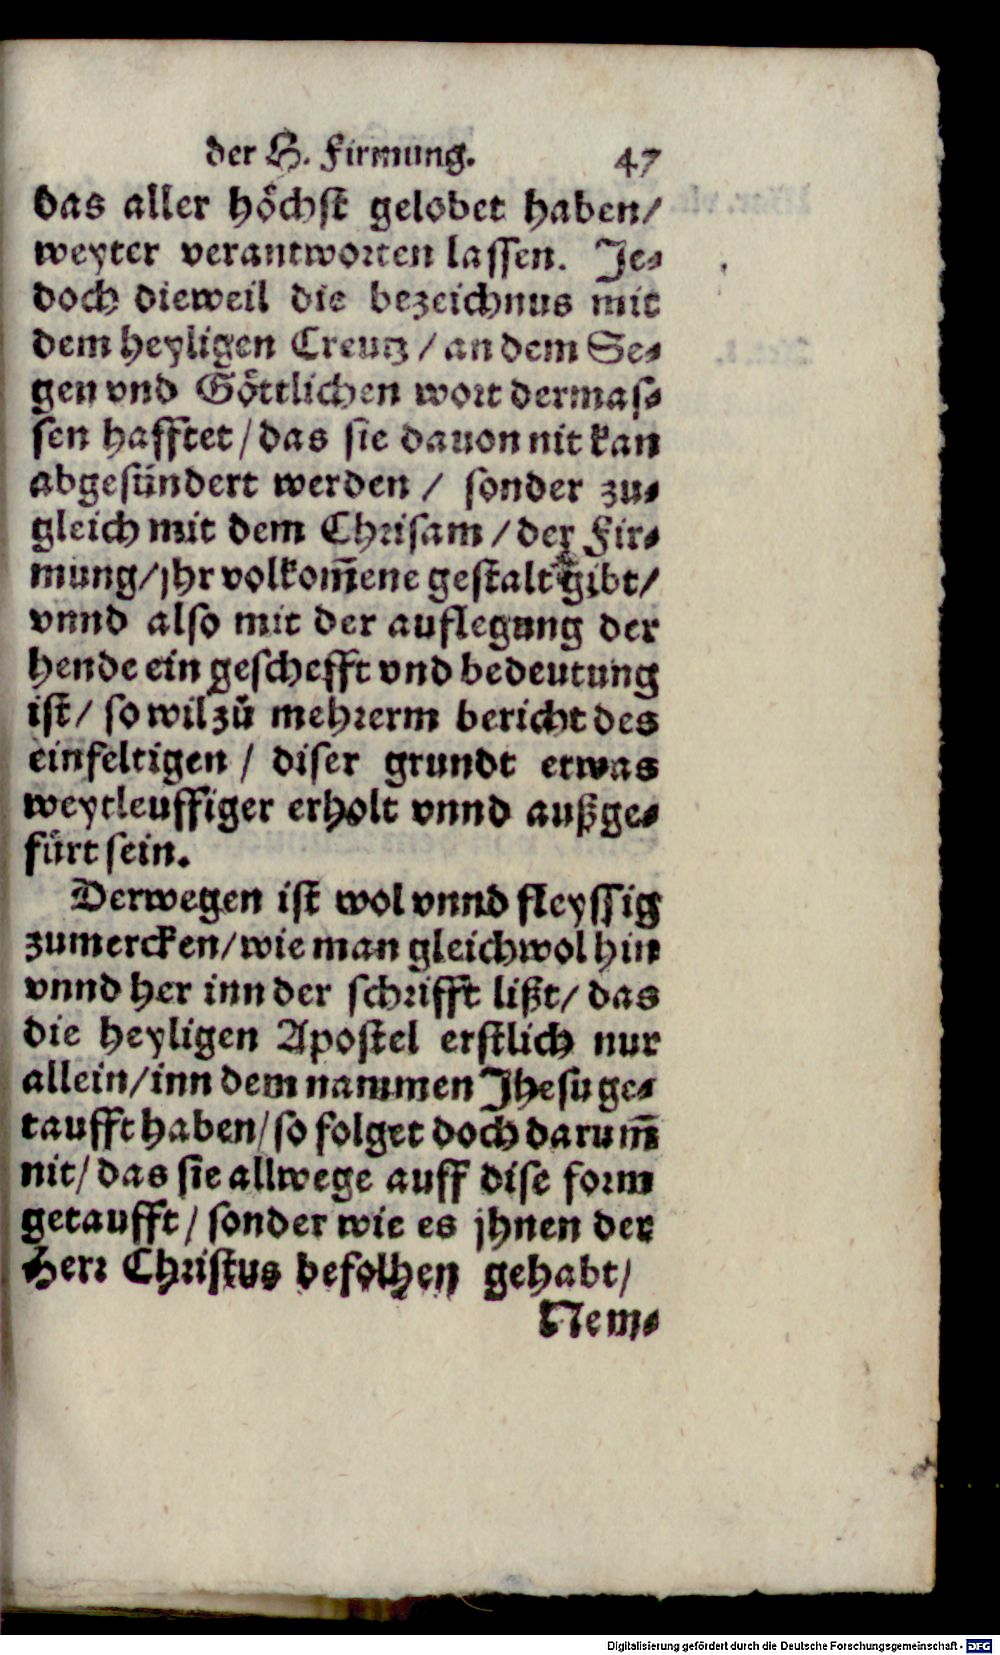 der H. Firmung. 47
das aller höchst gelobet haben/
weyter verantworten lassen. Je⸗
doch dieweil die bezeichnus mit
dem heyligen Creutz / an dem Se⸗
gen vnd Göttlichen wort dermas⸗
sen hafftet / das sie dauon nit kan
abgesündert werden / sonder zu⸗
gleich mit dem Chrisam / der Fir⸗
mung/jhr volkom̃ene gestalt gibt/
vnnd also mit der auflegung der
hende ein geschefft vnd bedeutung
ist/ so wil zů mehrerm bericht des
einfeltigen / diser grundt etwas
weytleuffiger erholt vnnd außge⸗
fürt sein.
Derwegen ist wol vnnd fleyssig
zumercken/wie man gleichwol hin
vnnd her inn der schrifft lißt/ das
die heyligen Apostel erstlich nur
allein/inn dem nammen Jhesu ge⸗
taufft haben/so folget doch darum̃
nit/ das sie allwege auff dise form
getaufft / sonder wie es jhnen der
Herr Christus befolhen gehabt/
Nem⸗
Digitalisierung gefördert durch die Deutsche Forschungsgemeinschaft - DFG